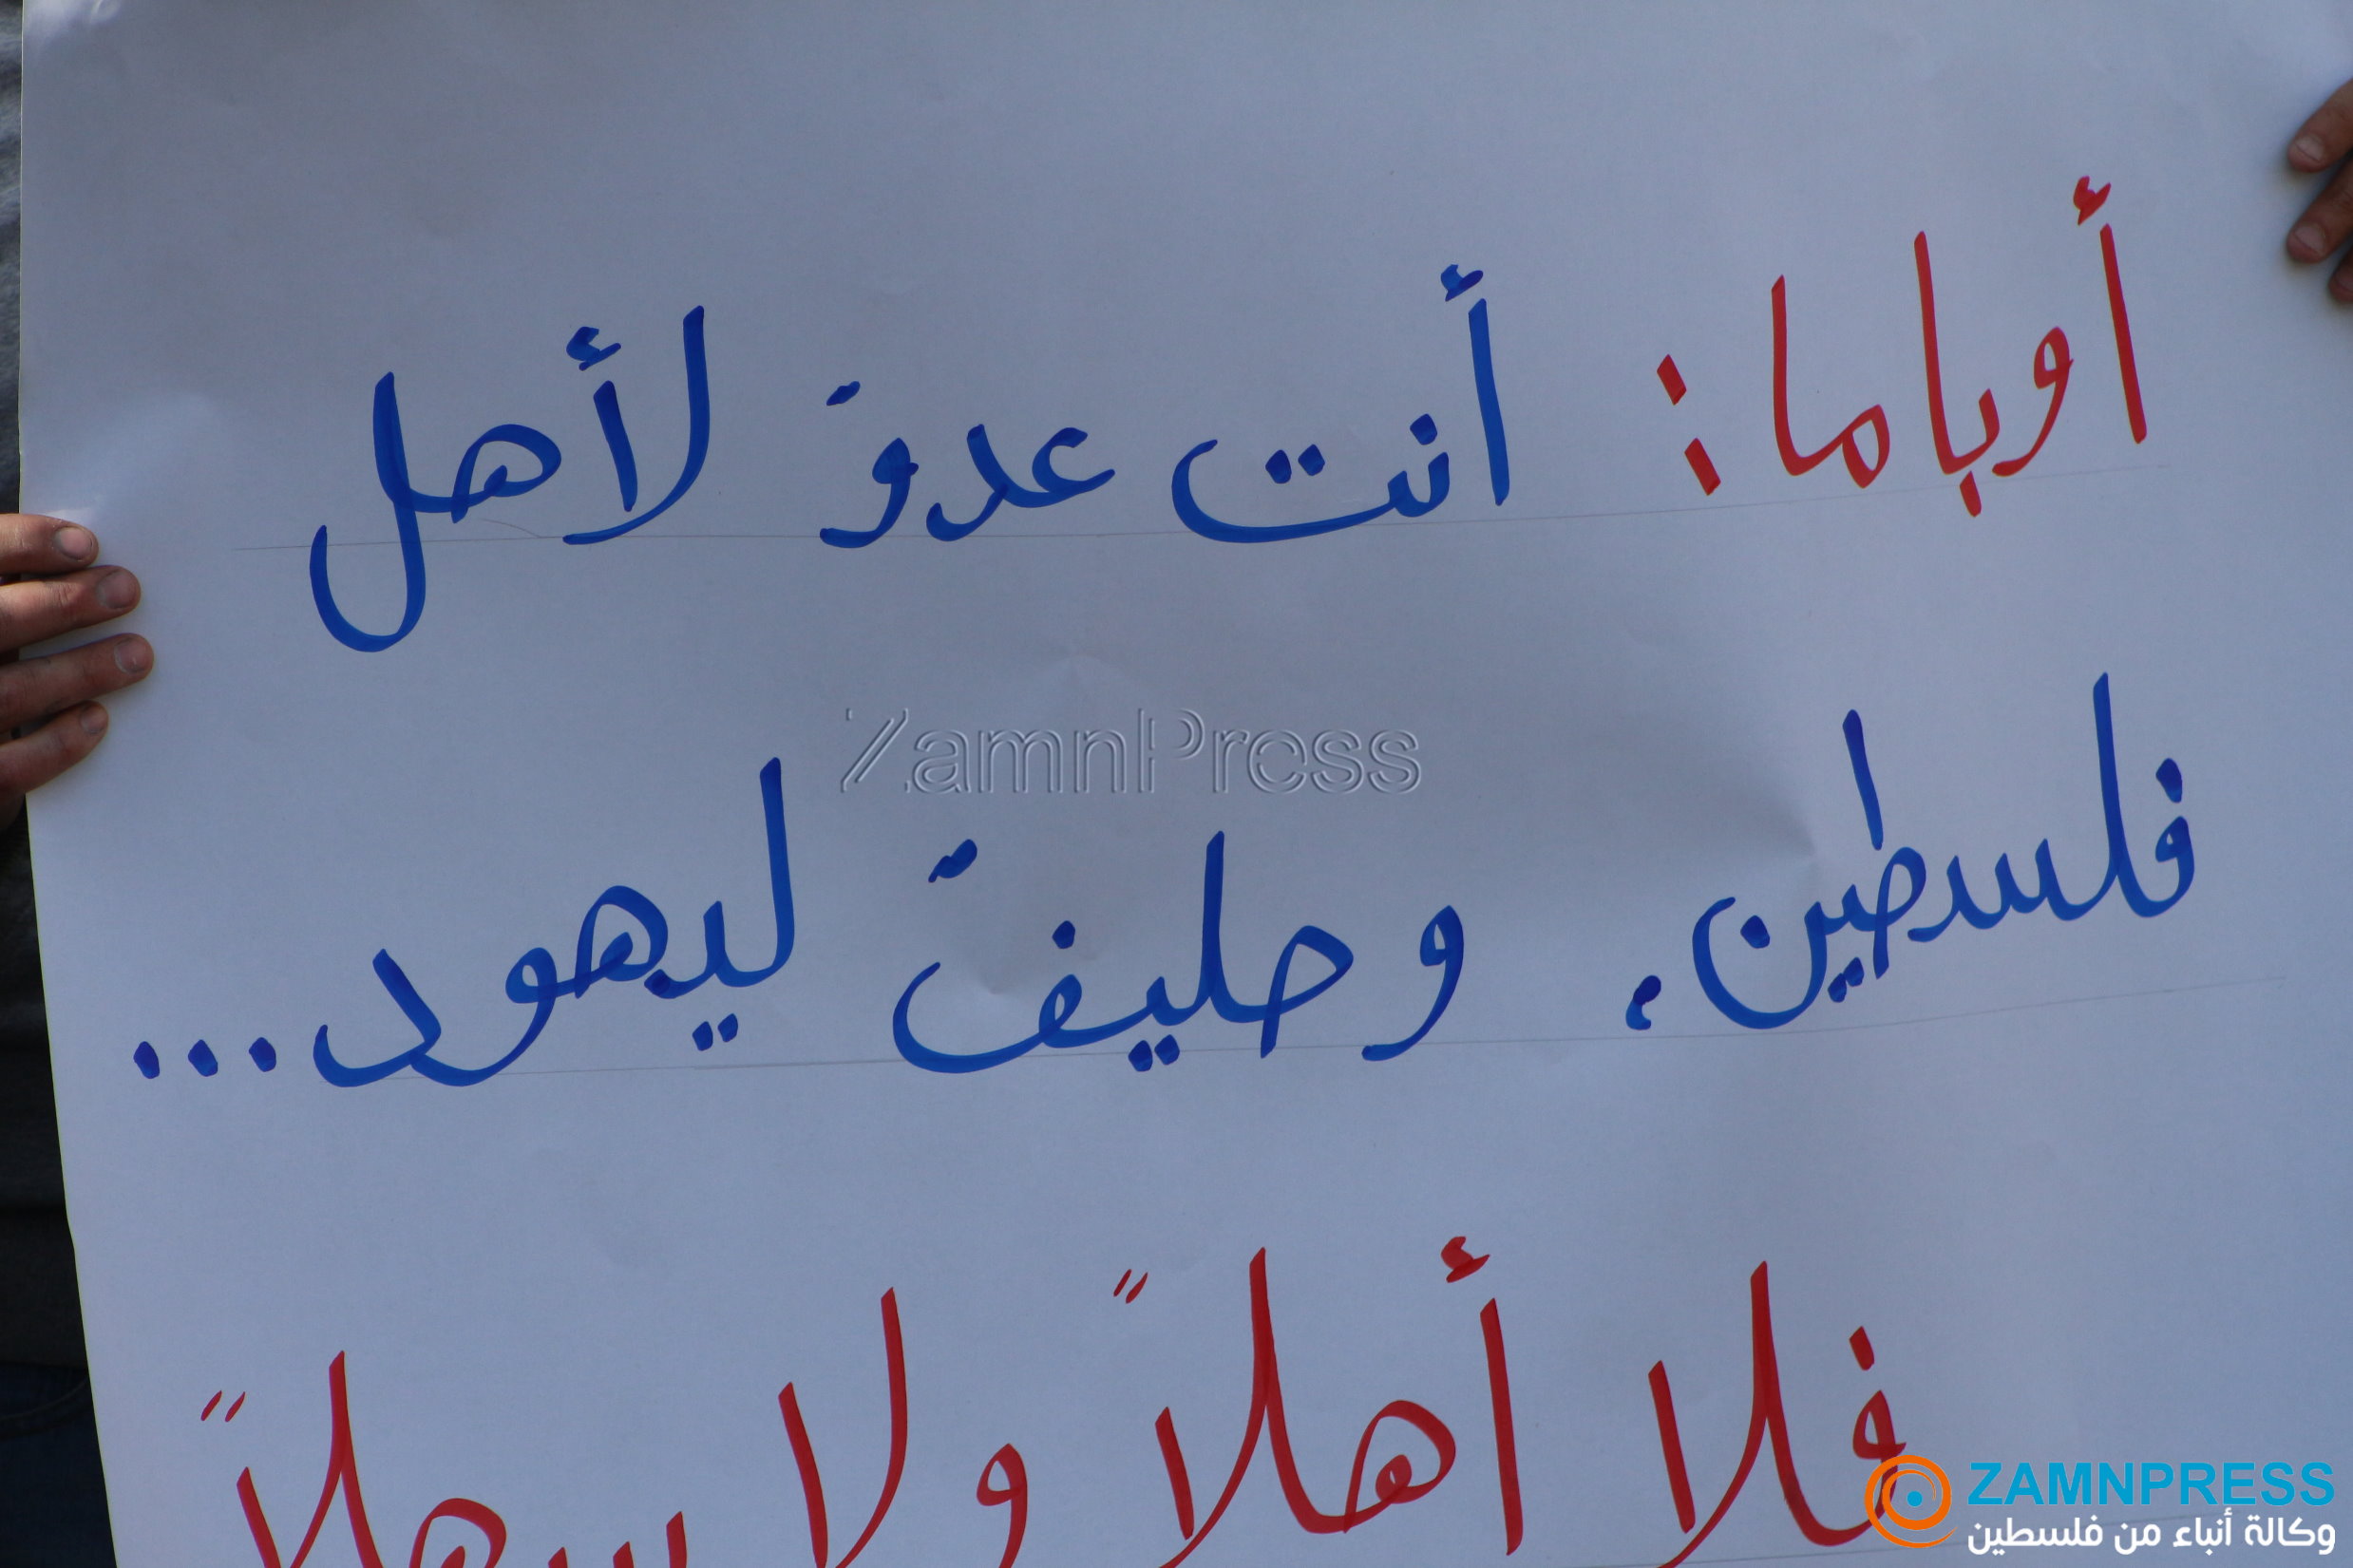 أوباما: أنت عدوّ لأهل
فلسطين، وحليفّ ليهود...
فلا أهلاً ولا سهلاً
ZamnPress
ZAMNPRESS
وكالة أنباء من فلسطين